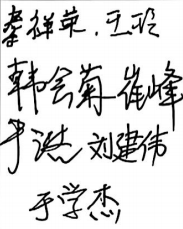 秦祥荣.王玲
韩会菊 崔峰
尹涛 刘建伟
于学杰